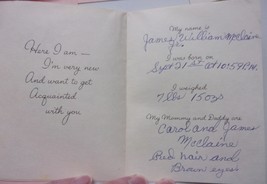 Here I am —
I'm very new
And want to get
Acquainted
with you
My name is
James William McClaine
Jr.
I was born on
Sept 21 st at 10:59 P.M.
I weighed
7 lbs 15 ozs
My Mommy and Daddy are
Carol and James
McClaine
Red hair and
Brown eyes